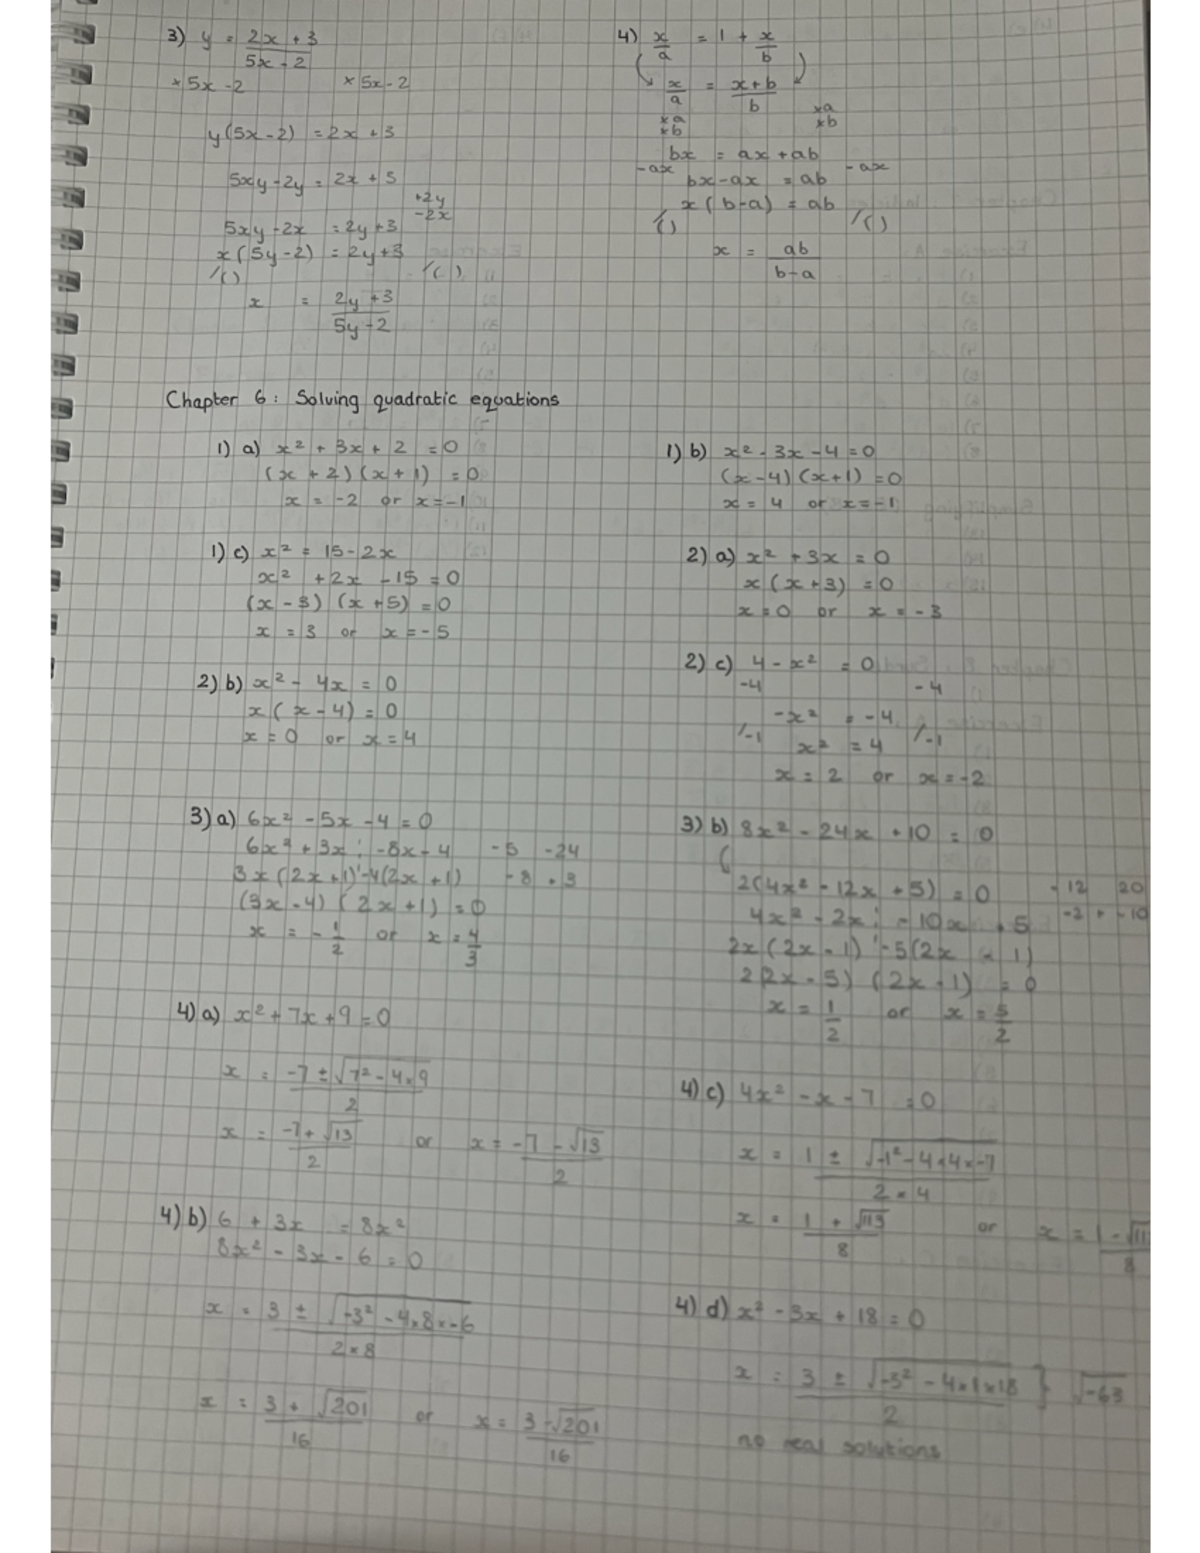 3) y = (2x + 3)/(5x - 2)
× 5x - 2 × 5x - 2
y(5x - 2) = 2x + 3
5xy - 2y = 2x + 3
+2y
-2x
5xy - 2x = 2y + 3
x(5y - 2) = 2y + 3
/() /()
x = (2y + 3)/(5y - 2)
4) x/a = 1 + x/b
x/a = (x + b)/b
×a ×a
×b ×b
bx = ax + ab
-ax -ax
bx - ax = ab
x(b - a) = ab
/() /()
x = ab/(b - a)
Chapter 6: Solving quadratic equations
1) a) x² + 3x + 2 = 0
(x + 2)(x + 1) = 0
x = -2 or x = -1
1) b) x² - 3x - 4 = 0
(x - 4)(x + 1) = 0
x = 4 or x = -1
1) c) x² = 15 - 2x
x² + 2x - 15 = 0
(x - 3)(x + 5) = 0
x = 3 or x = -5
2) a) x² + 3x = 0
x(x + 3) = 0
x = 0 or x = -3
2) b) x² - 4x = 0
x(x - 4) = 0
x = 0 or x = 4
2) c) 4 - x² = 0
-4 -4
-x² = -4
/-1 /-1
x² = 4
x = 2 or x = -2
3) a) 6x² - 5x - 4 = 0
6x² + 3x ¦ -8x - 4 -5 -24
3x(2x + 1) ' -4(2x + 1) -8 + 3
(3x - 4)(2x + 1) = 0
x = -1/2 or x = 4/3
3) b) 8x² - 24x + 10 = 0
(
2(4x² - 12x + 5) = 0 -12 20
4x² - 2x ¦ - 10x + 5 -2 + -10
2x(2x - 1) ' -5(2x - 1)
2(2x - 5)(2x - 1) = 0
x = 1/2 or x = 5/2
4) a) x² + 7x + 9 = 0
x = (-7 ± √(7² - 4×9))/2
x = (-7 + √13)/2 or x = (-7 - √13)/2
4) b) 6 + 3x = 8x²
8x² - 3x - 6 = 0
x = (3 ± √(-3² - 4×8×-6))/(2×8)
x = (3 + √201)/16 or x = (3 - √201)/16
4) c) 4x² - x - 7 = 0
x = (1 ± √(-1² - 4×4×-7))/(2×4)
x = (1 + √113)/8 or x = (1 - √11)/8
4) d) x² - 3x + 18 = 0
x = (3 ± √(-3² - 4×1×18))/2 } √-63
no real solutions